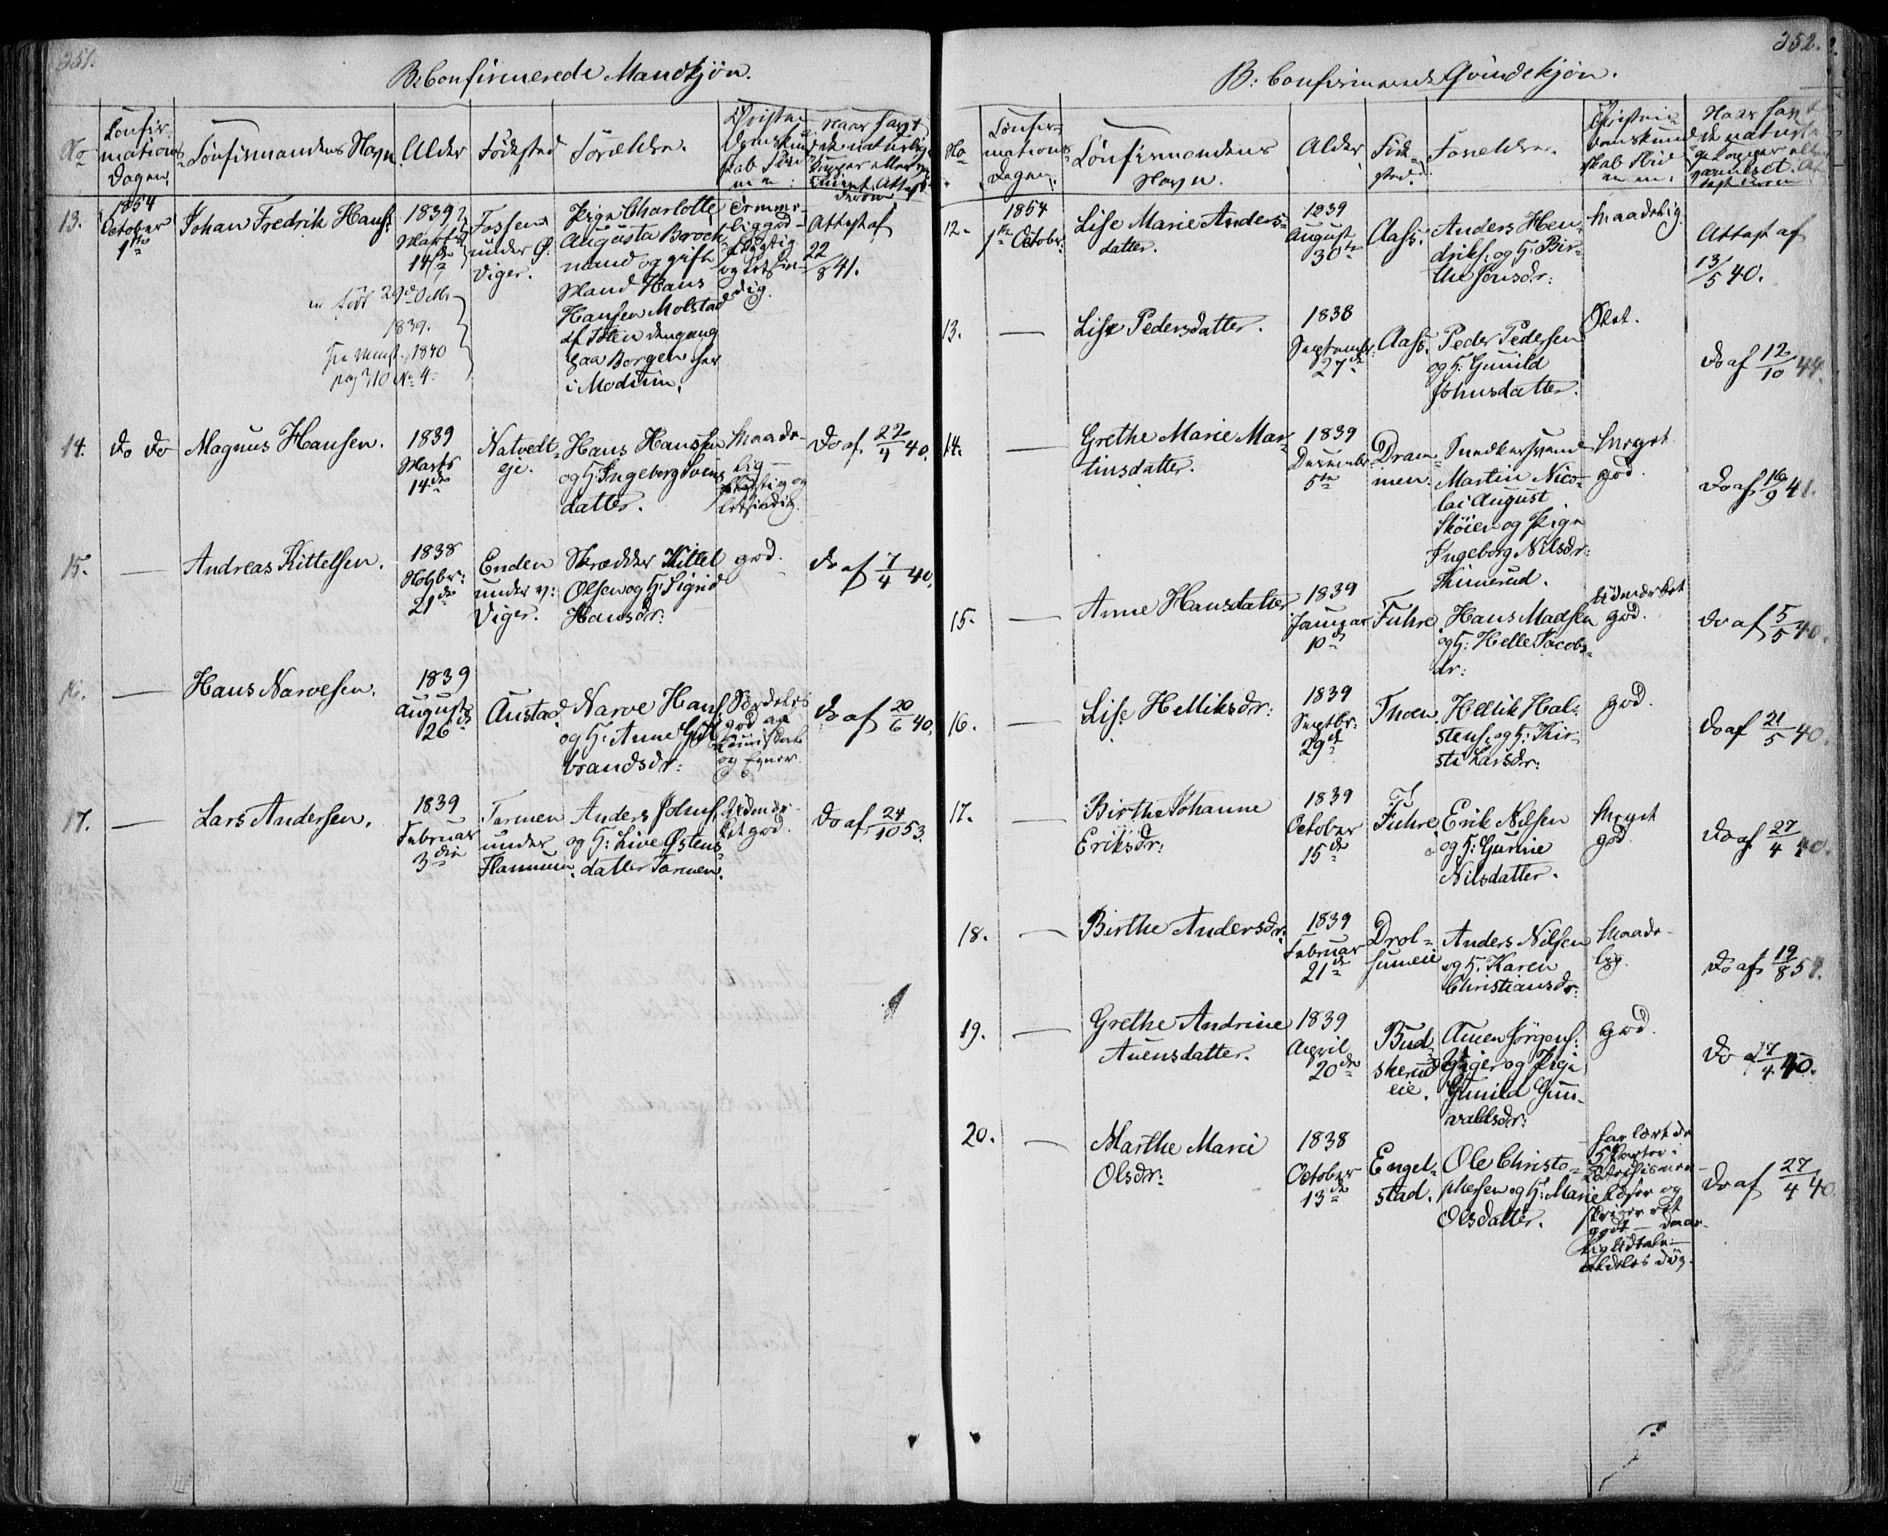 351.
B: Confirmerede Mandkjøn.
No
Confir-
mations
Dagen.
Confirmandens Navn
Alder
Fødested
Forældre.
Christen
domskund
skab
Naar havt
de naturlige
Kopper eller
13.
1854
October
1ste
Johan Fredrik Hans:
1839?
Marts
14de
en født 29de Octbr
1839.
pag 310 No 4.
Fossen
under Ø.
Viger.
Pige Charlotte
Augusta Brock-
mand og gift
Mand Hans
Hansen Molstad
af Toten dengang
paa Borgen her
i Modum.
Attest af
22/8 41.
14.
do do
Magnus Hansen.
1839
Marts
14de
Natvedt-
eje.
Hans Hanssen
og H: Ingeborg Svens
datter.
Maade-
lig -
flygtig og
letsindig.
do af 22/4 40.
15.
—
Andreas Kittelsen.
1838
Novbr:
21de
Enden
under V:
Viger.
Skrædder Kittel
Olsen og H: Sigrid
Hansdr:
god.
do af 7/4 40.
16.
—
Hans Narvesen.
1839
August
26de
Austad.
Narve Hans:
og H: Anne Gul-
brandsdr:
Særdeles
god
do af 20/6 40.
17.
—
Lars Andersen.
1839
Februar
3die
Tarmen
under
Flannum.
Anders Johns:
og H: Live Østens-
datter Tarmen.
Udmær-
ket god.
do af 24/10 53.
352.
B: Confirmerede Qvindekjøn.
No
Confir-
mations
Dagen.
Confirmandens
Navn.
Alder.
Føde-
sted.
Forældre.
Christen-
domskund
skab
Naar havt
de naturli-
ge Kopper eller
12.
1854
1ste October
Lise Marie Anders-
datter.
1839
August
30te
Aass.
Anders Hen-
driks: og H: Bir-
the Jonsdr:
Maadelig.
Attest af
13/5 40.
13.
—
Lise Pedersdatter.
1838
September
27de
Aass.
Peder Pedersen
og H: Gunild
Johnsdatter.
Slet.
do af 12/10 44.
14.
—
Grethe Marie Mar-
tinsdatter.
1839
December
5te
Dram-
men.
Snedkersvend
Martin Nico-
lai August
Skøien og Pige
Ingeborg Nilsdr:
Meget
god.
do af 16/9 41.
15.
—
Anne Hansdatter
1839
Januar
1ode
Fuhre.
Hans Madsen
og H: Helle Jacobs-
dr:
Udmærket
god.
do af 5/5 40.
16.
—
Lise Helliksdr:
1839
Septbr:
29de
Thoen.
Hellik Hal-
stens: og H: Kir-
sti Larsdr:
god.
do af 21/5 40.
17.
—
Birthe Johanne
Eriksdr:
1839
October
15de
Fuhre.
Erik Nilsen
og H: Gunne
Nilsdatter.
Meget
god.
do af 27/4 40.
18.
—
Birthe Andersdr:
1839
Februar
21de
Drol-
sumeie
Anders Nilsen
og H: Karen
Christiansdr:
Maade-
lig.
do af 19/8 54.
19.
—
Grethe Andrine
Auensdatter.
1839
April
20de
Bud-
skerud
eie.
Auen Jørgens:
Viger og Pige
Gunild Gun-
valdsdr:
god.
do 27/4 40.
20.
—
Marthe Marie
Olsdr:
1838
October
13de
Engel-
stad.
Ole Christo-
phersen og H: Marie
Olsdatter.
har lært de
5 Parter i
læser og
skriver ret
godt — daar-
lig Udtale —
aldeles døv.
do af 27/4 40.